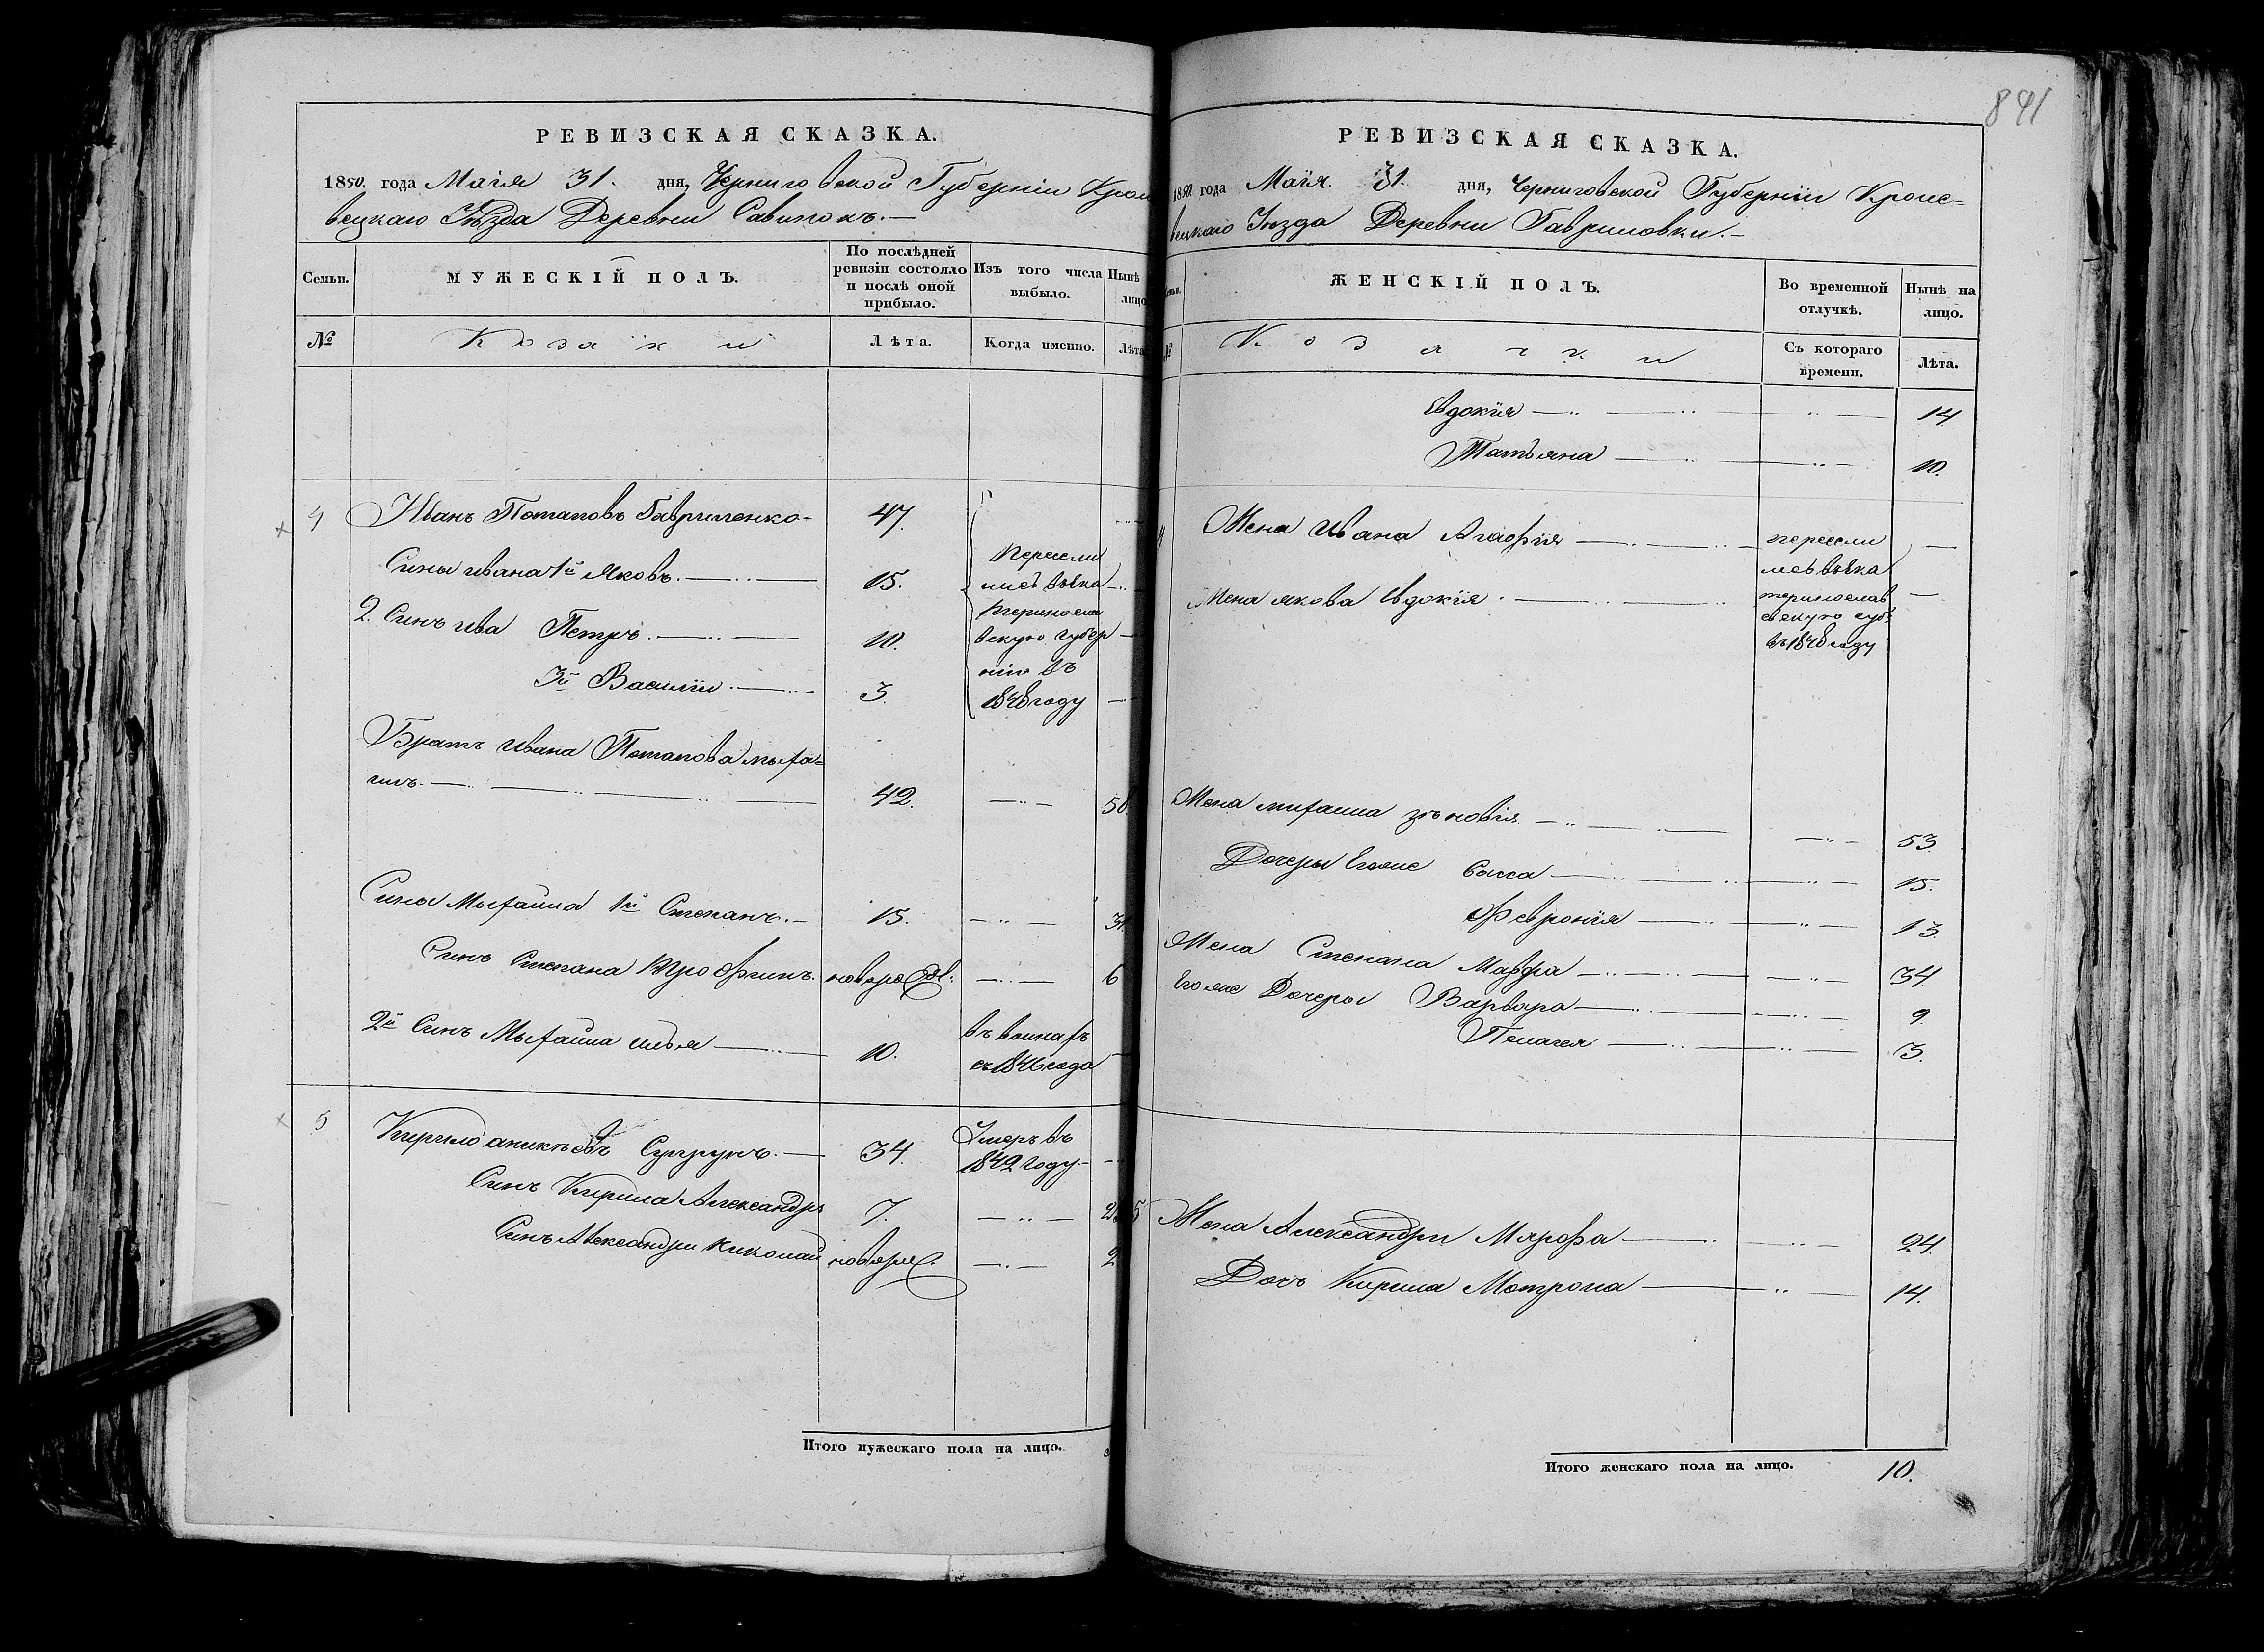 РЕВИЗСКАЯ СКАЗКА.
1850. года Маія 31. дня, Черниговской Губерніи Крол
вецкаго Уѣзда Деревни Савинокъ.—
Семьи.
МУЖЕСКІЙ ПОЛЪ.
По послѣдней
ревизіи состояло
и послѣ оной
прибыло.
Изъ того числа
выбыло.
Нынѣ
лицо
№
Козаки
Лѣта.
Когда именно.
Лѣта
4 Иванъ Потаповъ Гавриленко- 47.
Сины ивана 1й Яковъ. 15.
2. Синъ ива Петръ. 10.
3й Василіи. 3.
Пересели
лись вЪека
теринослав
вскую губер
нію въ
1848 году
Братъ ивана Потапова мыха=
илъ. 42. 50
Сины Мыхаила 1й Степанъ. 15. 31
Синъ Степана Трофимъ. новорож: 6
2й Синъ Мыхаила илья 10. въ воинахъ
съ 1846 года
5 Кирило аникѣевъ Супрунъ. 34. Умеръ въ
1842 году
Синъ Кирила Александръ 7. 2
Синъ Александри николай новорж. 2
Итого мужескаго пола на лицо.
841
РЕВИЗСКАЯ СКАЗКА.
1850 года Маія. 31. дня, Черниговской Губерніи Кроле=
вецкаго Уѣзда Деревни Гавриловки.—
ЖЕНСКІЙ ПОЛЪ.
Во временной
отлучкѣ.
Нынѣ на
лицо.
№
Козачки
Съ котораго
времени.
Лѣта.
Евдокія 14.
Татьяна 10.
4 Жена Ивана Агафія
Жена якова Евдокія.
пересели
лись вЪека
теринослав
скую губ:
въ 1848 году
Жена михаила зѣновія 53
Дочеры Егоже Васса 15.
Февронія 13.
Жена Степана Марфа 34.
Егоже Дочеры Варвара 9.
Пелагея 3.
5 Жена Александри Марфа 24.
Дочъ Кирила Мотрона 14.
Итого женскаго пола на лицо. 10.